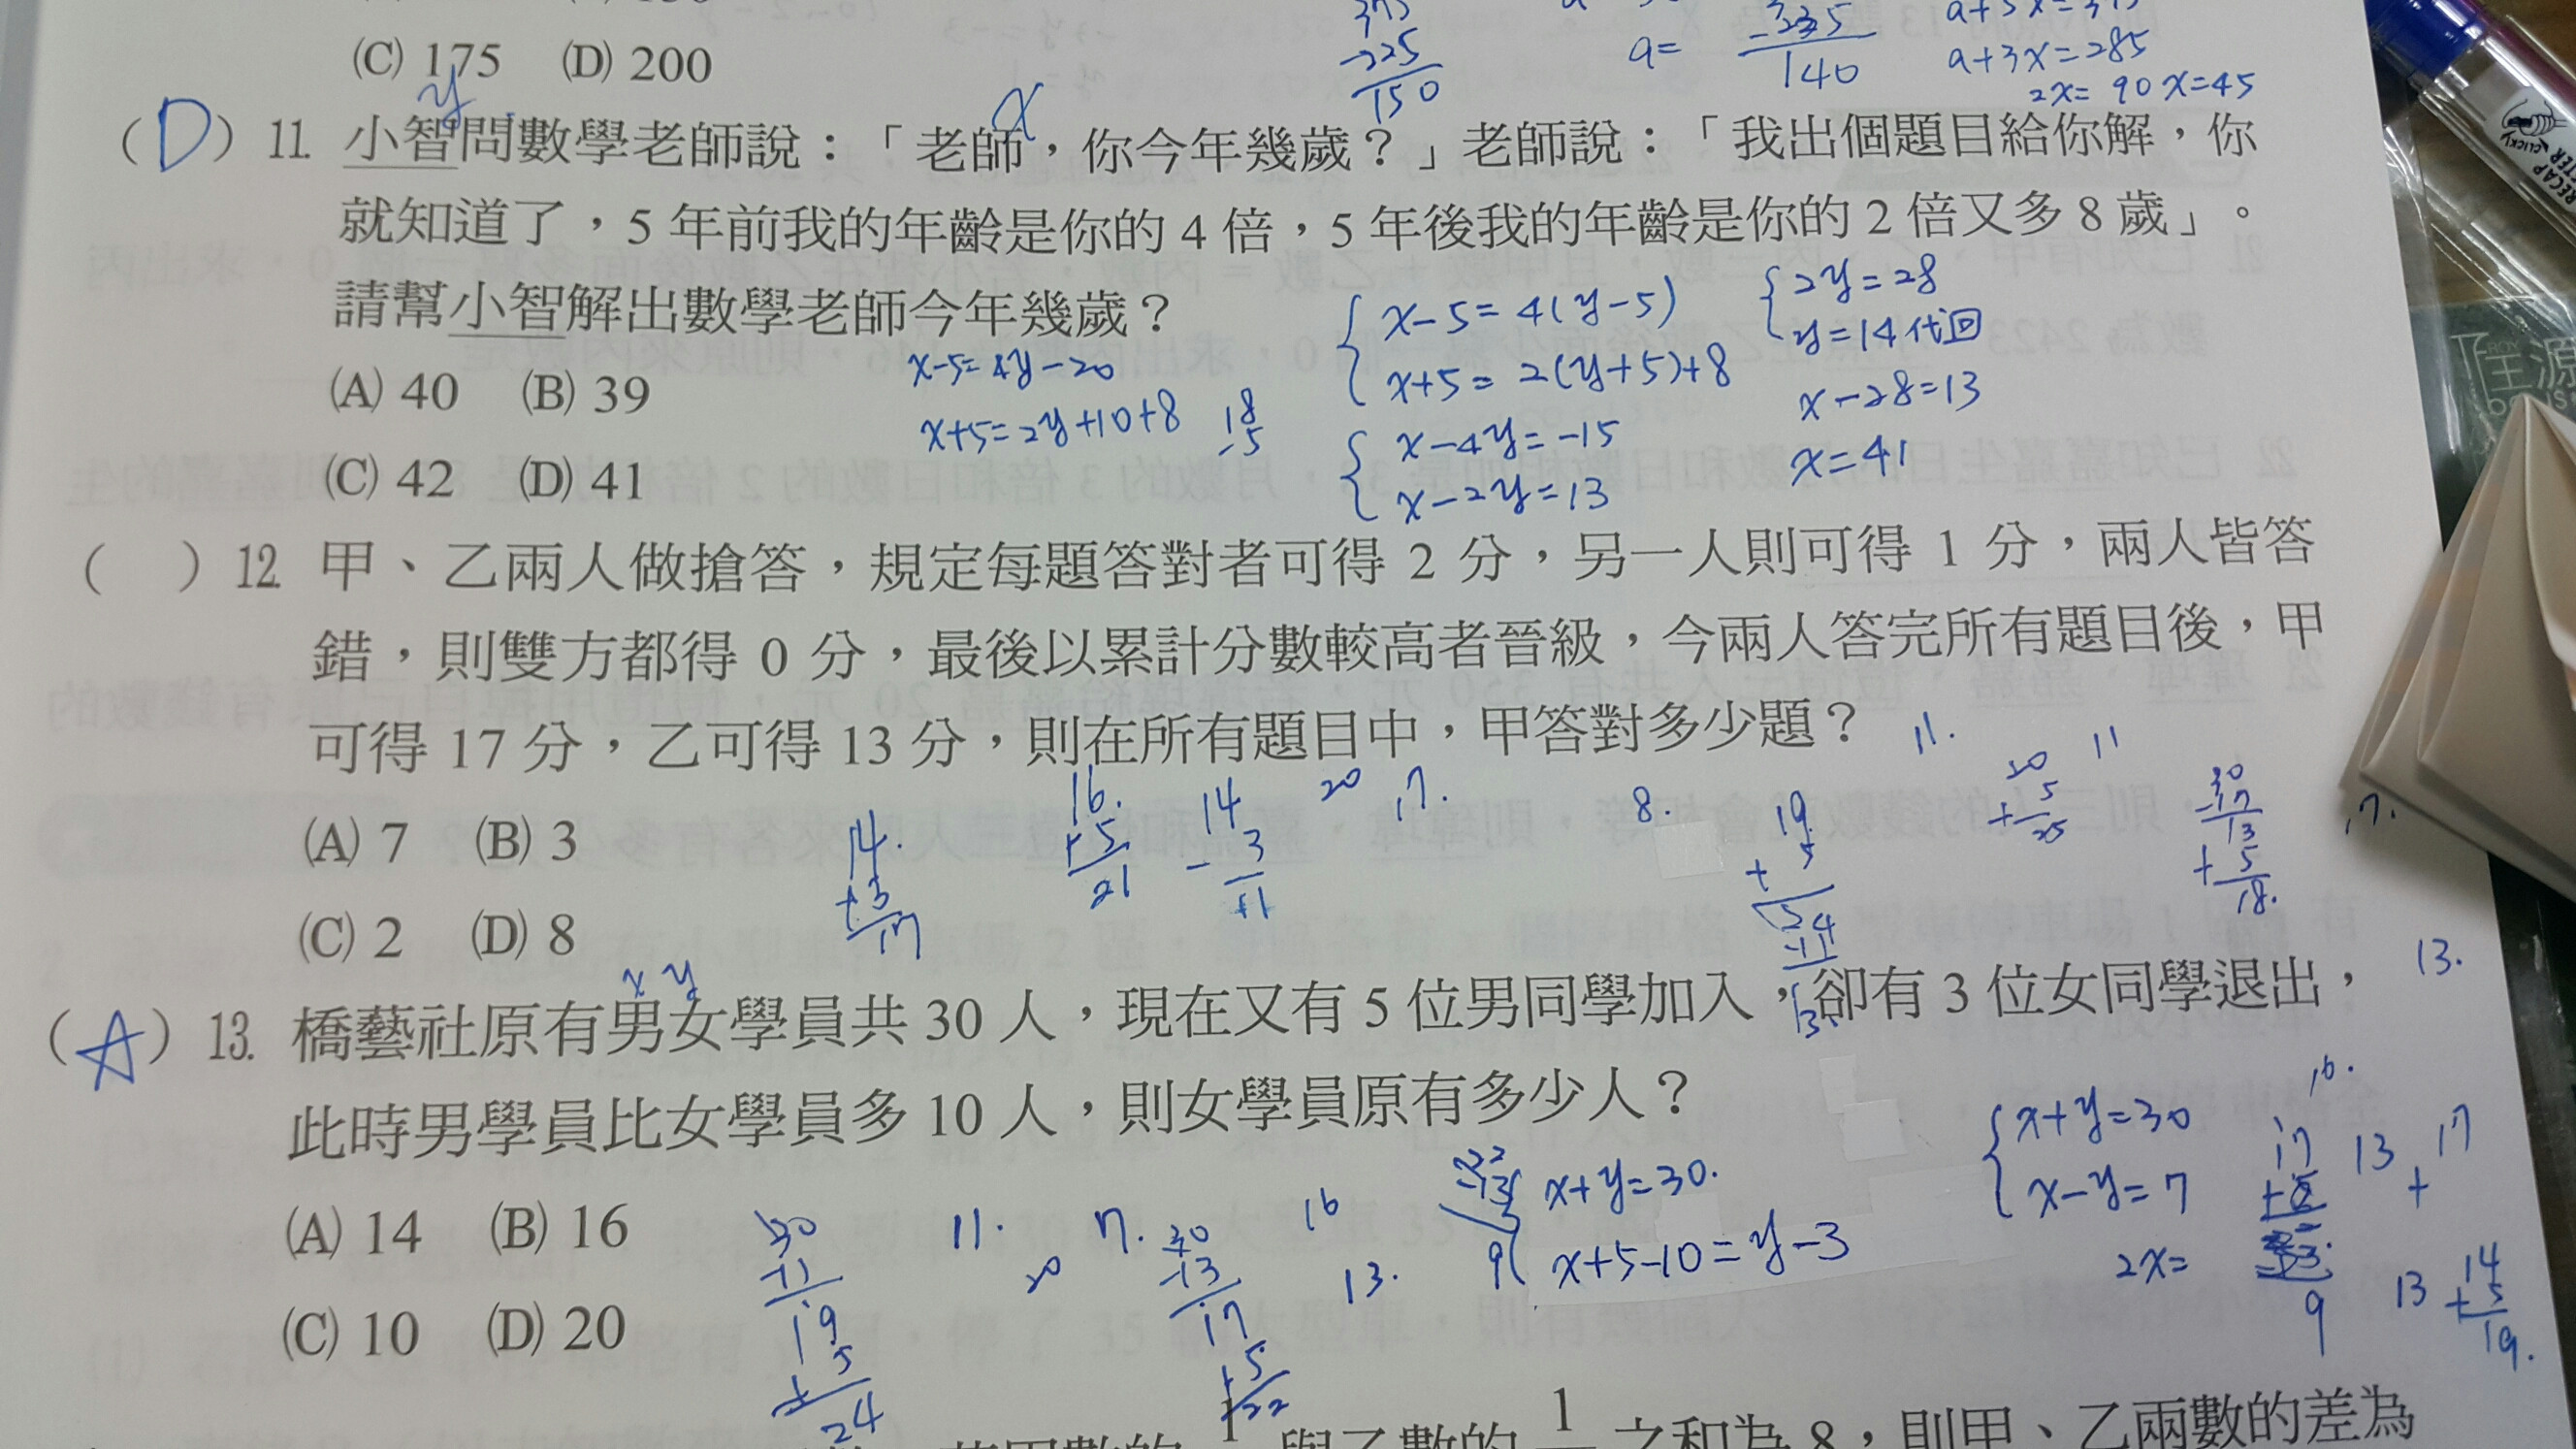 (C) 175 (D) 200
375
-225
150
a=
-235
140
a+5x=375
a+3x=285
2x= 90 x=45
y x
(D) 11. 小智問數學老師說：「老師，你今年幾歲？」老師說：「我出個題目給你解，你
就知道了，5 年前我的年齡是你的 4 倍，5 年後我的年齡是你的 2 倍又多 8 歲」。
請幫小智解出數學老師今年幾歲？
(A) 40 (B) 39
(C) 42 (D) 41
x-5=4y-20
x+5=2y+10+8
18
-5
x-5=4(y-5)
x+5=2(y+5)+8
x-4y=-15
x-2y=13
2y=28
y=14代回
x-28=13
x=41
( ) 12. 甲、乙兩人做搶答，規定每題答對者可得 2 分，另一人則可得 1 分，兩人皆答
錯，則雙方都得 0 分，最後以累計分數較高者晉級，今兩人答完所有題目後，甲
可得 17 分，乙可得 13 分，則在所有題目中，甲答對多少題？
(A) 7 (B) 3
(C) 2 (D) 8
14.
+3
17
16.
+5
21
14
-3
11
20 17.
8.
11.
19
+5
24
-11
13.
20
+5
25
11
30
-17
13
+5
18.
17.
13.
x y
(A) 13. 橋藝社原有男女學員共 30 人，現在又有 5 位男同學加入，卻有 3 位女同學退出，
此時男學員比女學員多 10 人，則女學員原有多少人？
(A) 14 (B) 16
(C) 10 (D) 20
30
-11
19
+5
24
11.
20
17.
30
-13
17
+5
22
16
13.
22
-13
9
x+y=30.
x+5-10=y-3
x+y=30
x-y=7
2x=
16.
17
9
13
+17
13
14
+5
19.
與乙數的 1 之和為 8，則甲、乙兩數的差為